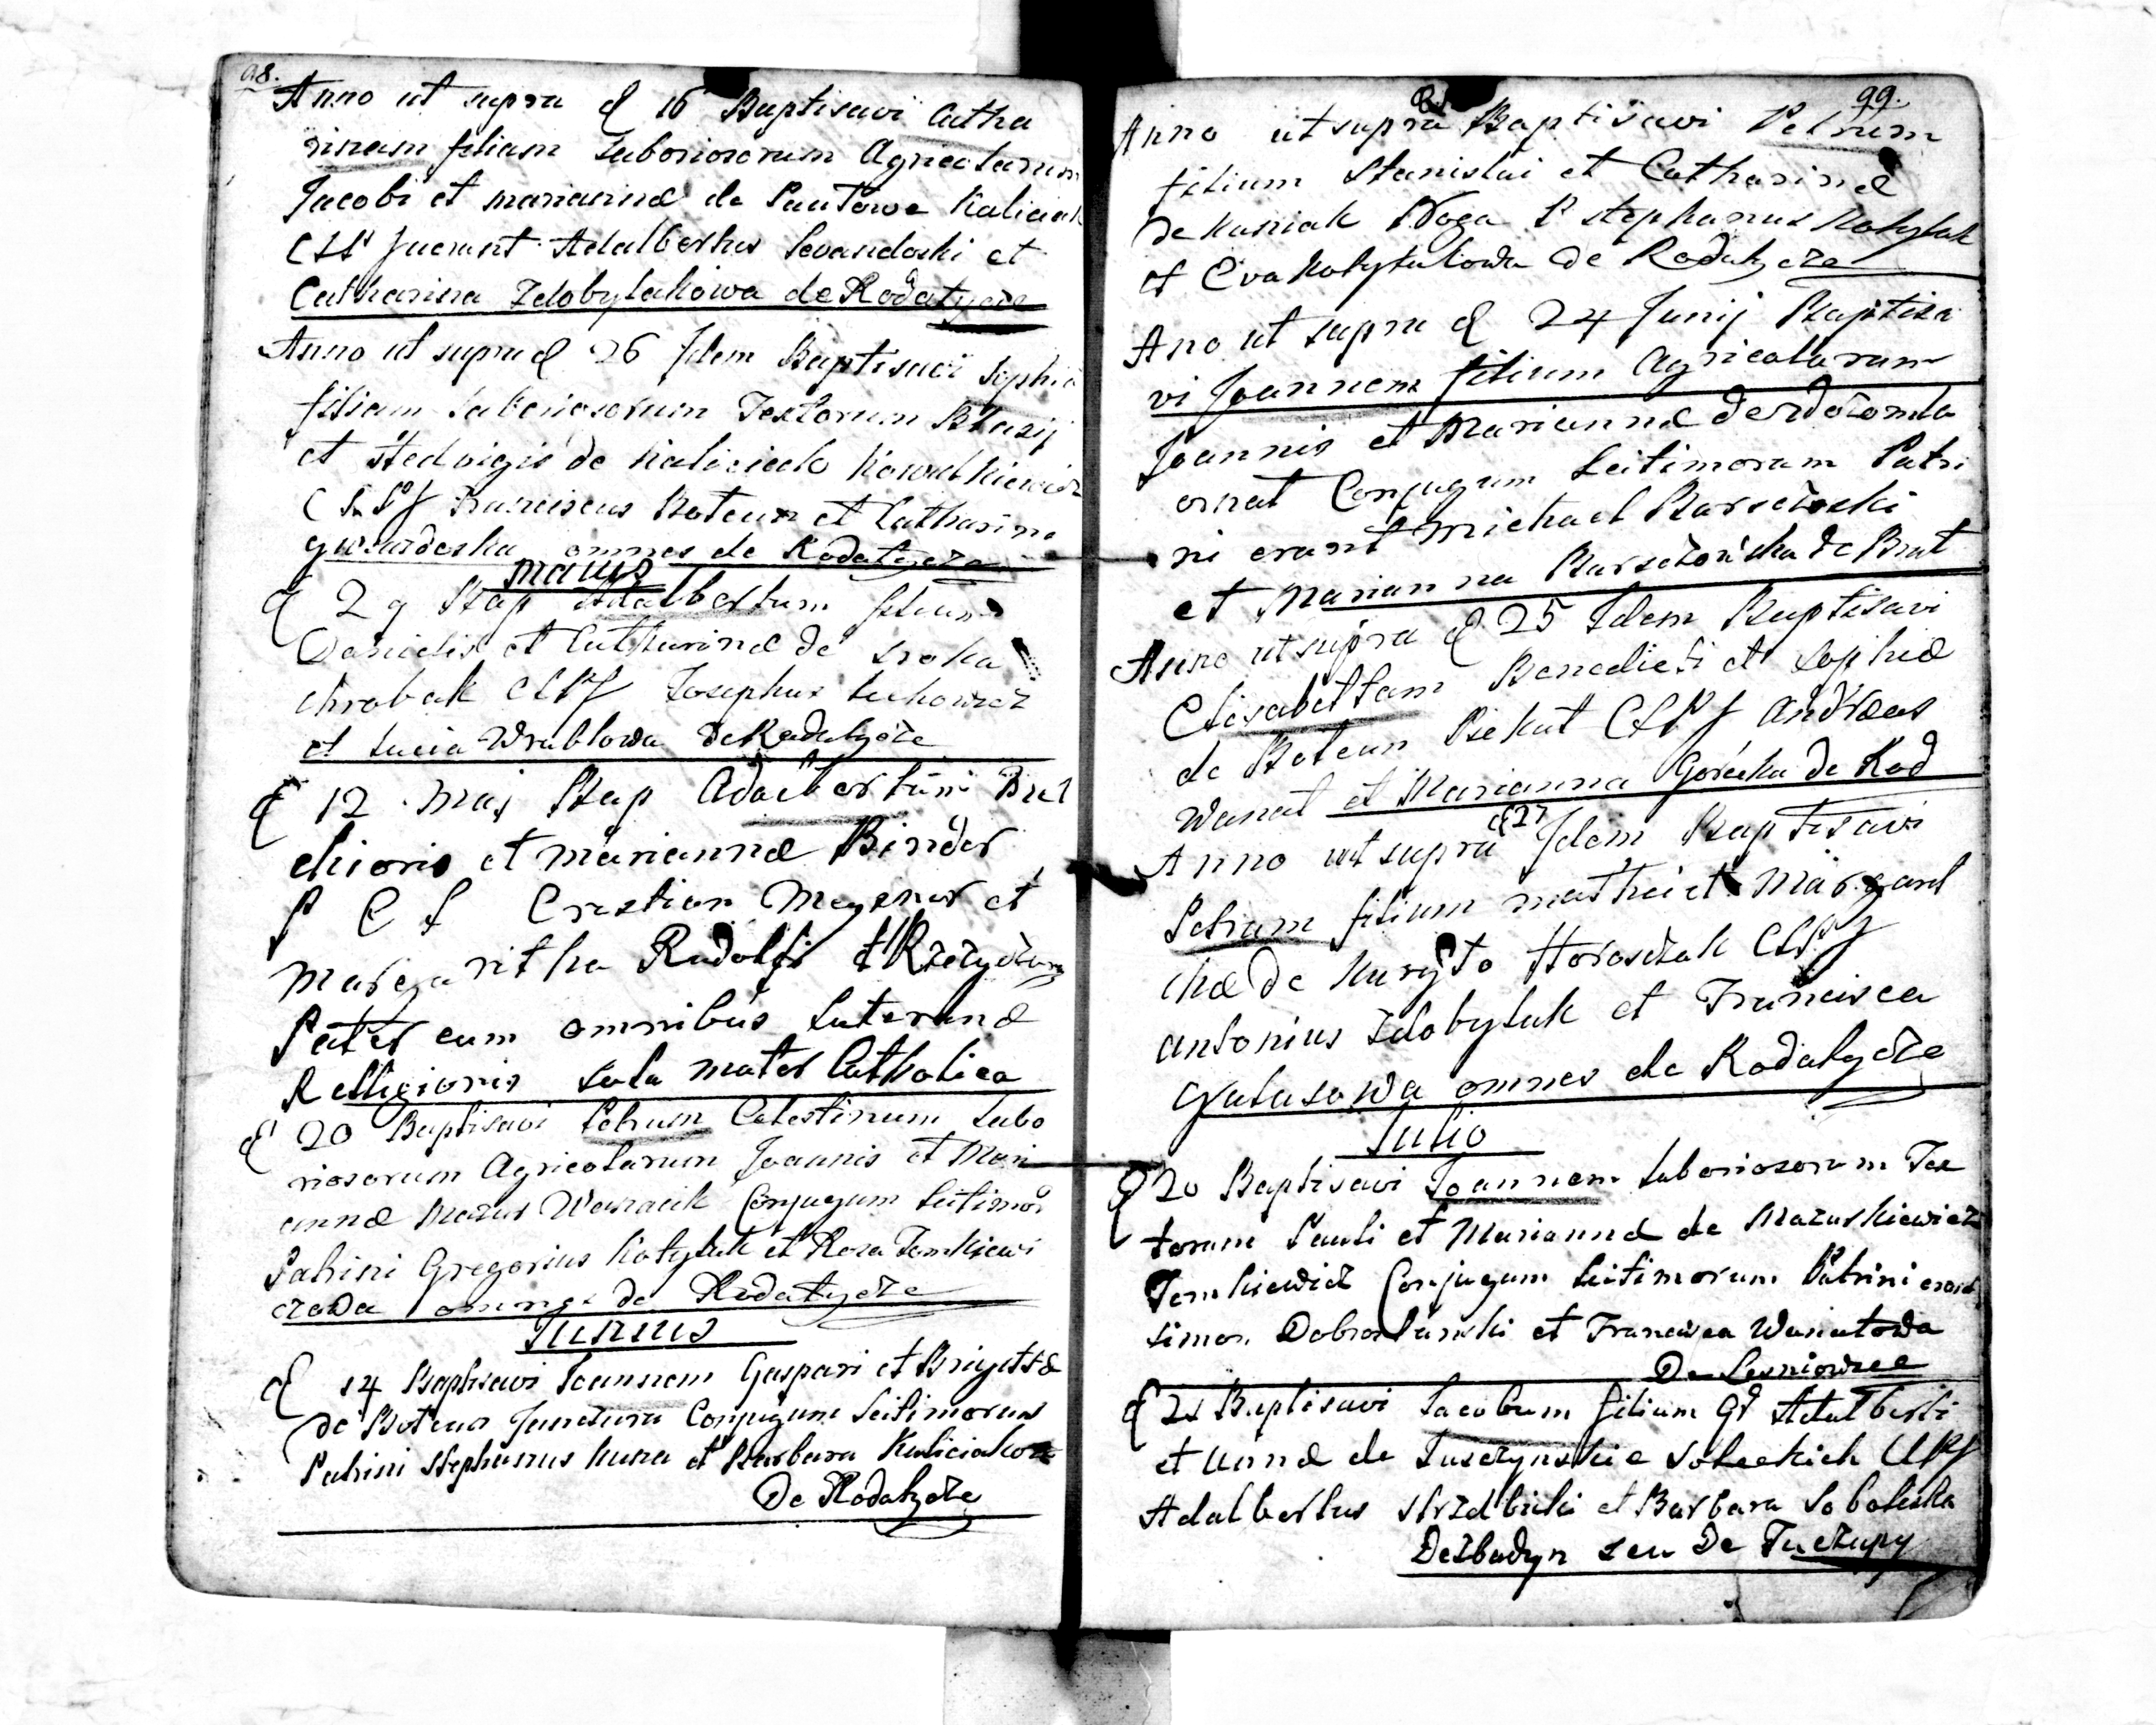 98.
Anno ut supra d 16 Baptisavi Catha
rinam filiam Laboriosorum Agricolarum
Jacobi et mariannæ de Pautowe Kaliciak
CLP fuerunt Adalbertus Levandoski et
Catharina Zdobylakowa de Rodatycze
Anno ut supra d 26 Idem Baptisavi Sophia
filiam Laboriosorum Textorum Blasij
et Hedvigis de Kaliciak Kowalkiewicz
CLPf Franciscus Botcun et Catharina
omnes de Rodatycze
maius
d 29 Bap Adalbertum filium
Danielis et Catharinæ de Sroka
Chrobak CLPf Josephus
et Lucia Wrublowa de Rodatycze
d 12 Maj Bap Adalbertum
chioris et mariannæ Binder
P C L Cristian Meyener et
Margaritha Rudolfi
Pater cum omnibus Luteranæ
Relligionis sola mater Catholica
d 20 Baptisavi Petrum Celestinum Labo
riosorum Agricolarum Joannis et Mari
annæ Mazur Conjugum Leitimor
Patrini Gregorius Kotylak et Roza Tomkiewi
czowa omnes de Rodatycze
Junius
d 14 Baptisavi Joannem Gaspari et Brigittæ
de Botcun Conjugum Leitimorum
Patrini Stephanus Kura et Barbara Kaliciakowa
De Rodatycze
99.
Anno ut supra Baptisavi Petrum
filium Stanislai et Catharinæ
de Kusniak Noga P Stephanus Kotylak
et Eva Kotylakowa de Rodatycze
Ano ut supra d 24 Junij Baptisa
vi Joannem filium Agricolarum
Joannis et Mariannæ
ornat Conjugum Leitimorum Patri
ni erant Michael
et Marianna de Brat
Anno ut supra d 25 Idem Baptisavi
Elisabettam Benedicti et Sophiæ
de Botcun Piekut CLPf Andræas
Wanat et Marianna Gorecka de Rod
Anno ut supra d 27 Idem Baptisavi
Petrum filium mathei et Margaret
hæ de Kuryto Horoszczak CLPf
antonius Zdobylak et Francisca
Galasowa omnes de Rodatycze
Julio
d 20 Baptisavi Joannem Laboriosorum Tex
torum Pauli et Mariannæ de Mazurkiewicz
Tomkiewicz Conjugum Leitimorum Patrini erant
simon et Francisca Wanatowa
De Lesniowice
d 21 Baptisavi Jacobum filium Gd Adalberti
et Annæ de Tuszynskie Soleckich CLPf
Adalbertus et Barbara Soboleska
seu De Tuczapy